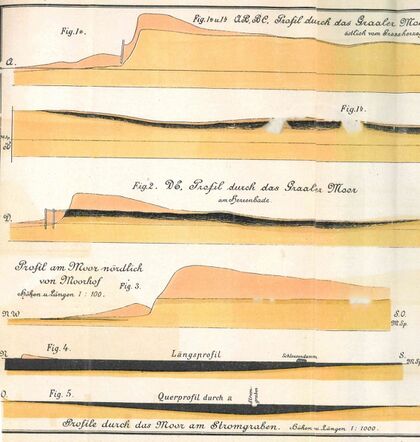 Fig. 1a.
Fig. 1a u. 1b AB, BC, Profil durch das Graaler Moo
östlich vom Grossherzog
A.
Fig. 1b.
B.
Fig. 2. DE, Profil durch das Graaler Moor
am Herrenbade
D.
Profil am Moor nördlich
von Moorhof
Höhen u. Längen 1 : 100.
Fig. 3.
N.W.
S.O.
M.Sp.
N.
Fig. 4.
Längsprofil
Schleusendamm
S.
M.Sp.
O.
Fig. 5.
Querprofil durch a
Strom-
graben
Profile durch das Moor am Stromgraben. Höhen u. Längen 1 : 1000.